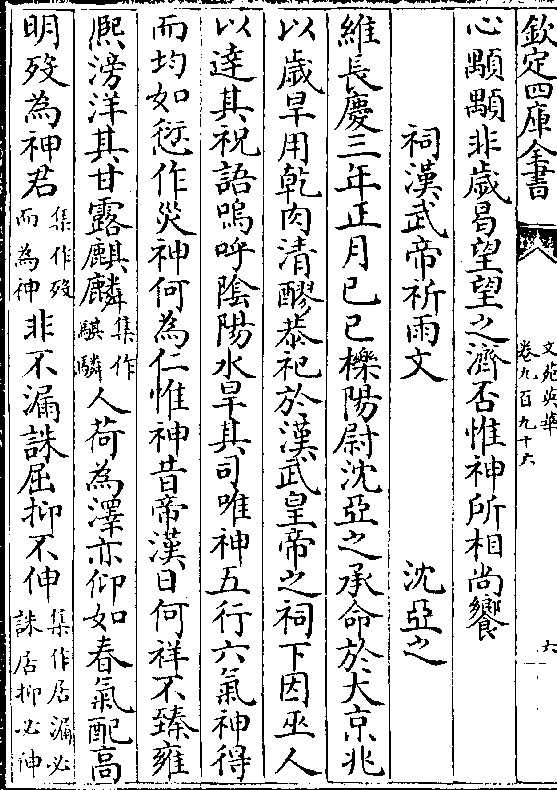 欽定四庫全書
文苑英華
卷九百九十六
六
心顒顒非歳曷望望之濟否惟神所相尚饗
祠漢武帝祈雨文 沈亞之
維長慶三年正月已已櫟陽尉沈亞之承命於大京兆
以歳旱用乾肉清醪恭祀於漢武皇帝之祠下因巫人
以達其祝語嗚呼隂陽水旱其司唯神五行六氣神得
而均如愆作災神何為仁惟神昔帝漢日何祥不臻雍
熈滂洋其甘露麒麟集作騏驎人荷為澤亦仰如春氣配高
明殁為神君集作殁而為神非不漏誅屈抑不伸集作居漏必誅居抑必伸